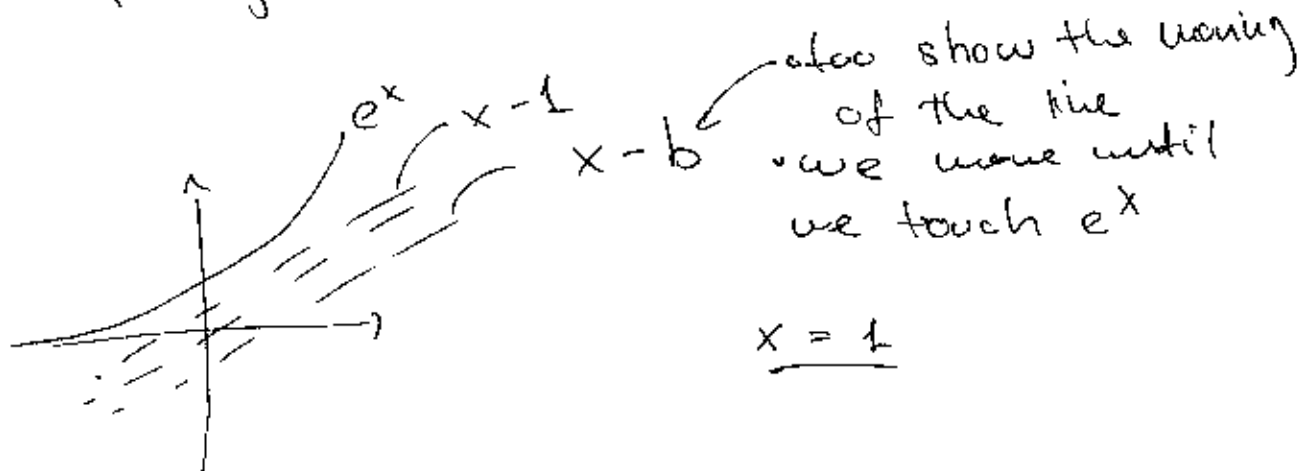 e^x
x - 1
x - b
also show the moving
of the line
• we move until
we touch e^x
x = 1